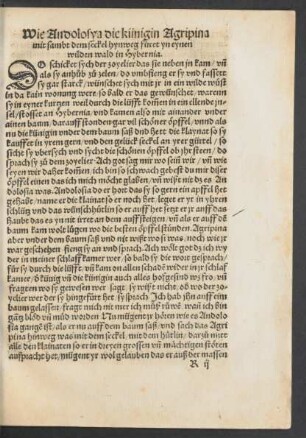 Wie Andolosya die künigin Agripina
mit sambt dem seckel hynweg fůret yn eynen
wilden wald in Hybernia.
SO schicket sych der zoyelier das sie neben jn kam / vñ
als sy anhůb zů zelen / do umbfieng er sy und fasset
sy gar starck / wünschet sych mit jr in ein wilde wůst
in da kain wonung were / so bald er das gewünschet . waren
sy in eyner kurtzen weil durch die lüfft komen in ein ellende jn=
sel / stosset an Hybernia / und kamen also mit ainander under
ainen baum / darauff stonden gar vil schöner öpffel / wund als
nu die künigin under dem baum saß und hett die klaynat so sy
kaufft in yrem gern / und den gelück seckel an yrer gürtel / so
sichte sy ubersych und sycht die schönen öpffel ob jhr steen / do
sprach sy zů dem zoyelier Ach got sag mir wo seind wir / vñ wie
seyen wir daher komen / ich bin so schwach gebest du mir diser
öpffel einen das ich mich möchte glaßen / vñ wißt nit dz es An
dolosia was. Andolosia do er hort das sy so gern ein äpffel het
gehaßt / name er die klainat so er noch het / leget er yr in yhren
schlůß und das wünschhütlin so er auff het setzt er jr auff das
haubt das es yn nit irret an dem auffsteigen . vñ als er auff dē
baum kam wolt lůgen wo die besten öpffel stůnden . Agripina
aber under dem baum saß und nit wißt wo si was / noch wie jr
war geschehen / fieng sy an und sprach Ach wolt got dz ich wy
der in meiner schlaff kamer wer . so bald sy die wort gesprach /
fůr sy durch die lüfft . vñ kam on allen schadē wider in jr schlaf
kamer / d künig vñ die künigin auch alles hofgesind wz fro . vñ
fragten wo sy gewesen wer / sage sy wißte nicht / ob wo der zo=
yelier wer der sy hingefůrt het / sy sprach Ich hab jhn auff eim
baum gelassen / fragt mich nit mer ich můß růwē . wañ ich bin
gātz blöd vñ müd worden Nu mügent yr hören wie es Andolo
sia gangē ist / als er nu auff dem baum saß / und sach das Agri
pina hinweg was mit dem seckel . mit dem hütlin / darzů mitt
alle den klainaten so er in dreyen grossen vñ mächtigen stöten
auffpracht het / mügent yr wol gelauben das er auß der massen
R ij